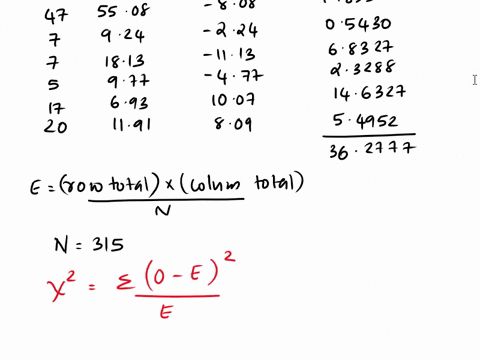 47 55.08 -8.08
7 9.24 -2.24 0.5430
7 18.13 -11.13 6.8327
5 9.77 -4.77 2.3288
17 6.93 10.07 14.6327
20 11.91 8.09 5.4952
36.2777
E = (row total) x (colum total)
N
N = 315
χ² = Σ (O - E)²
E